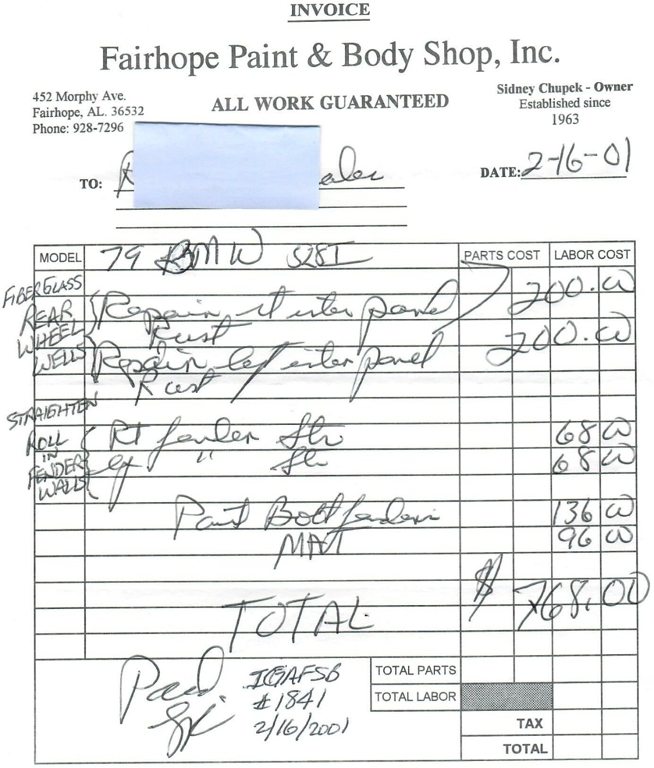 INVOICE
Fairhope Paint & Body Shop, Inc.
452 Morphy Ave.
Fairhope, AL. 36532
Phone: 928-7296
ALL WORK GUARANTEED
Sidney Chupek - Owner
Established since
1963
TO:
DATE: 2-16-01
MODEL 79 BMW 528I PARTS COST LABOR COST
FIBERGLASS
REAR
WHEEL
WELLS
Repair rt inter panel 200.00
Rust
Repair left inter panel 200.00
Rust
STRAIGHTEN
ROLL
IN
FENDER
WALLS
Rt fender Str 68 00
Lf " Str 68 00
Paint Both fenders 136 00
MAT 96 00
TOTAL $ 768.00
Paid
IGAFSB
#1841
2/16/2001
TOTAL PARTS
TOTAL LABOR
TAX
TOTAL